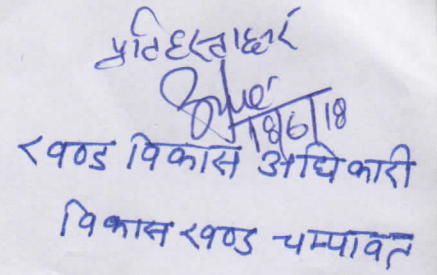 प्रतिहस्ताक्षर
18/6/18
खण्ड विकास अधिकारी
विकास खण्ड चम्पावत